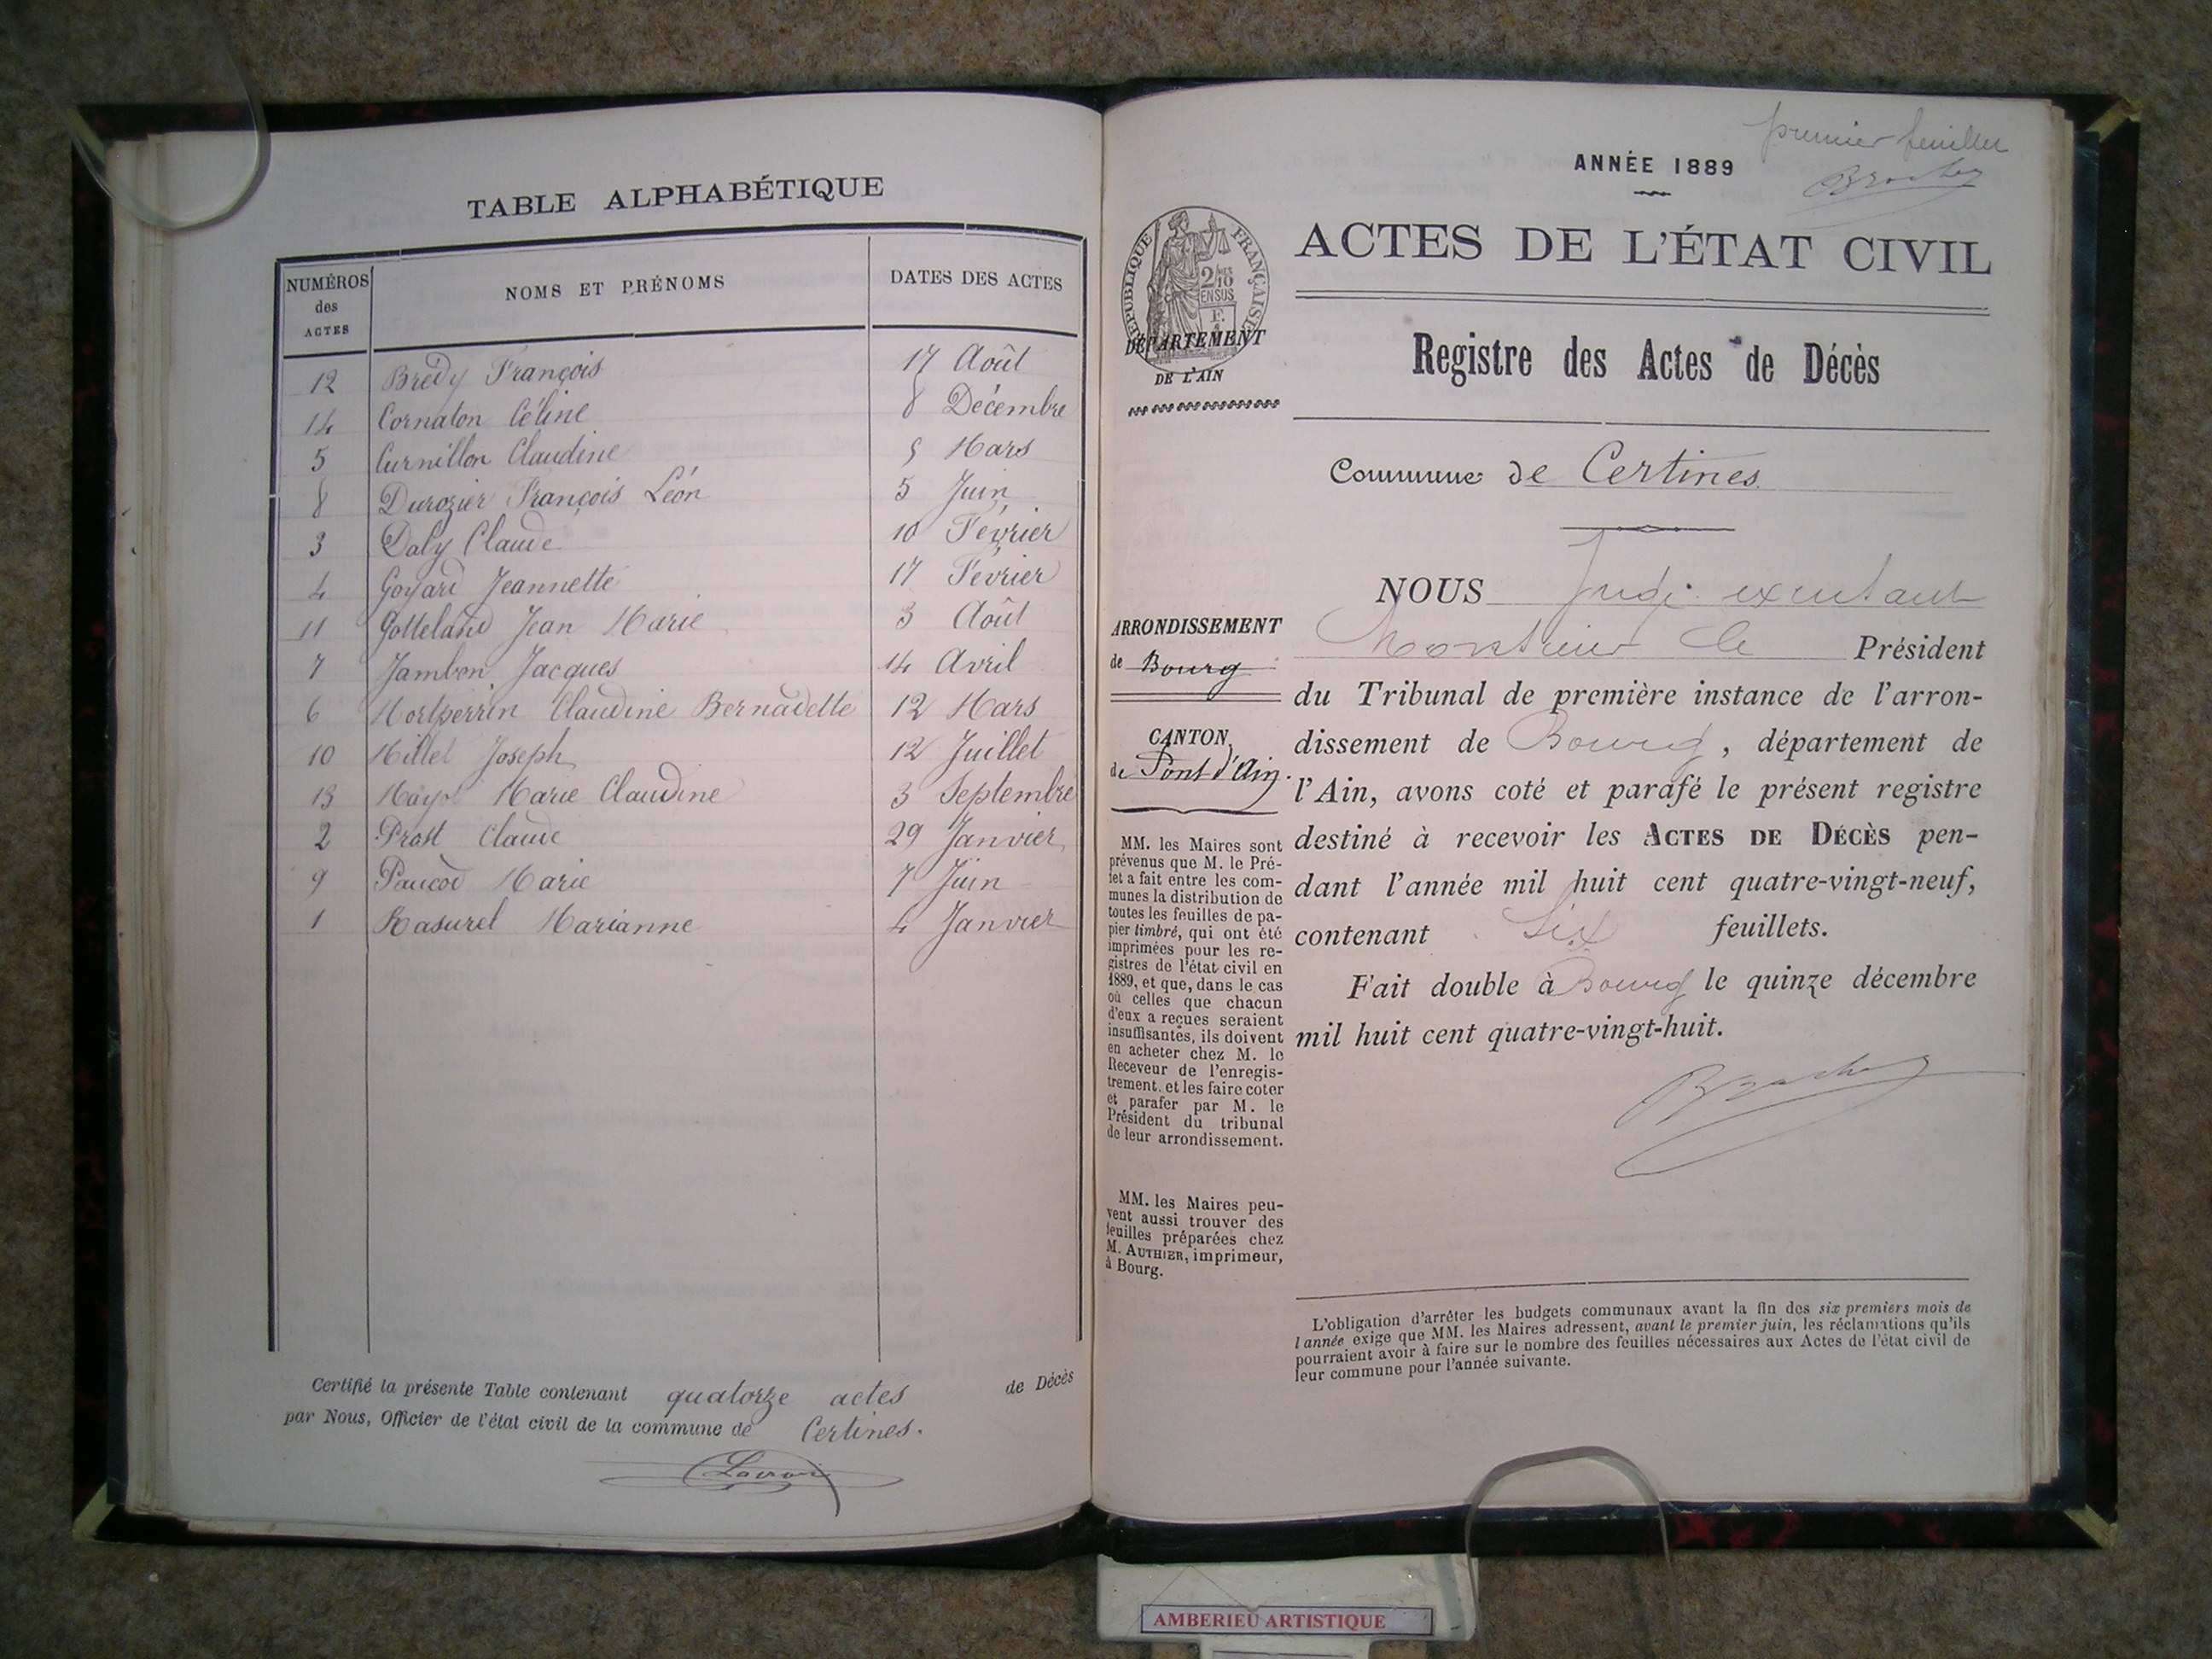 TABLE ALPHABÉTIQUE
NUMÉROS des ACTES
NOMS ET PRÉNOMS
DATES DES ACTES
12 Bredy François 17 Août
14 Cornaton Céline 8 Décembre
5 Curnillon Claudine 5 Mars
8 Durozier François Léon 5 Juin
3 Daly Claude 10 Février
4 Goyard Jeannette 17 Février
11 Gotteland Jean Marie 3 Août
7 Jambon Jacques 14 Avril
6 Mortperrin Claudine Bernadette 12 Mars
10 Millet Joseph 12 Juillet
13 Marie Claudine 3 Septembre
2 Prost Claude 29 Janvier
9 Paucod Marie 7 Juin
1 Rasurel Marianne 4 Janvier
Certifié la présente Table contenant quatorze actes de Décès
par Nous, Officier de l'état civil de la commune de Certines.
premier feuillet
ANNÉE 1889
ACTES DE L'ÉTAT CIVIL
RÉPUBLIQUE FRANÇAISE
2/10 EN SUS
DÉPARTEMENT
DE L'AIN
Registre des Actes de Décès
Commune de Certines
ARRONDISSEMENT
de Bourg
CANTON
de Pont d'Ain.
MM. les Maires sont
prévenus que M. le Pré-
fet a fait entre les com-
munes la distribution de
toutes les feuilles de pa-
pier timbré, qui ont été
imprimées pour les re-
gistres de l'état civil en
1889, et que, dans le cas
où celles que chacun
d'eux a reçues seraient
insuffisantes, ils doivent
en acheter chez M. le
Receveur de l'enregis-
trement, et les faire coter
et parafer par M. le
Président du tribunal
de leur arrondissement.
MM. les Maires peu-
vent aussi trouver des
feuilles préparées chez
M. AUTHIER, imprimeur,
à Bourg.
NOUS Juge
Monsieur le Président
du Tribunal de première instance de l'arron-
dissement de Bourg, département de
l'Ain, avons coté et parafé le présent registre
destiné à recevoir les ACTES DE DÉCÈS pen-
dant l'année mil huit cent quatre-vingt-neuf,
contenant Six feuillets.
Fait double à Bourg le quinze décembre
mil huit cent quatre-vingt-huit.
L'obligation d'arrêter les budgets communaux avant la fin des six premiers mois de
l'année exige que MM. les Maires adressent, avant le premier juin, les réclamations qu'ils
pourraient avoir à faire sur le nombre des feuilles nécessaires aux Actes de l'état civil de
leur commune pour l'année suivante.
AMBERIEU ARTISTIQUE